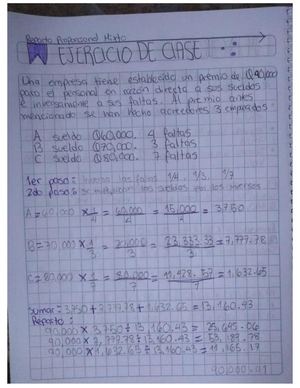 Reparto Proporcional Mixto
EJERCICIO DE CLASE
Una empresa tiene establecido un premio de Q90,000
para el personal en razón directa a sus sueldos
e inversamente a sus faltas. Al premio antes
mencionado se han hecho acreedores 3 empleados
A sueldo Q60,000. 4 faltas
B sueldo Q70,000. 3 faltas
C sueldo Q80,000. 7 faltas
1er paso: las faltas 1/4. 1/3. 1/7
2do paso: Se multiplican los sueldos por los inversos
A = 60,000 x 1/4 = 60,000/4 = 15,000/4 = 3750
B = 70,000 x 1/3 = 70,000/3 = 23,333.33/3 = 7,777.78
C = 80,000 x 1/7 = 80,000/7 = 11,428.57/7 = 1,632.65
Sumar = 3,750 + 7,777.78 + 1,632.65 = 13,160.43
Reparto:
90,000 x 3,750 ÷ 13,160.43 = 25,645.06
90,000 x 7,777.78 ÷ 13,160.43 = 53,189.78
90,000 x 1,632.65 ÷ 13,160.43 = 11,165.17